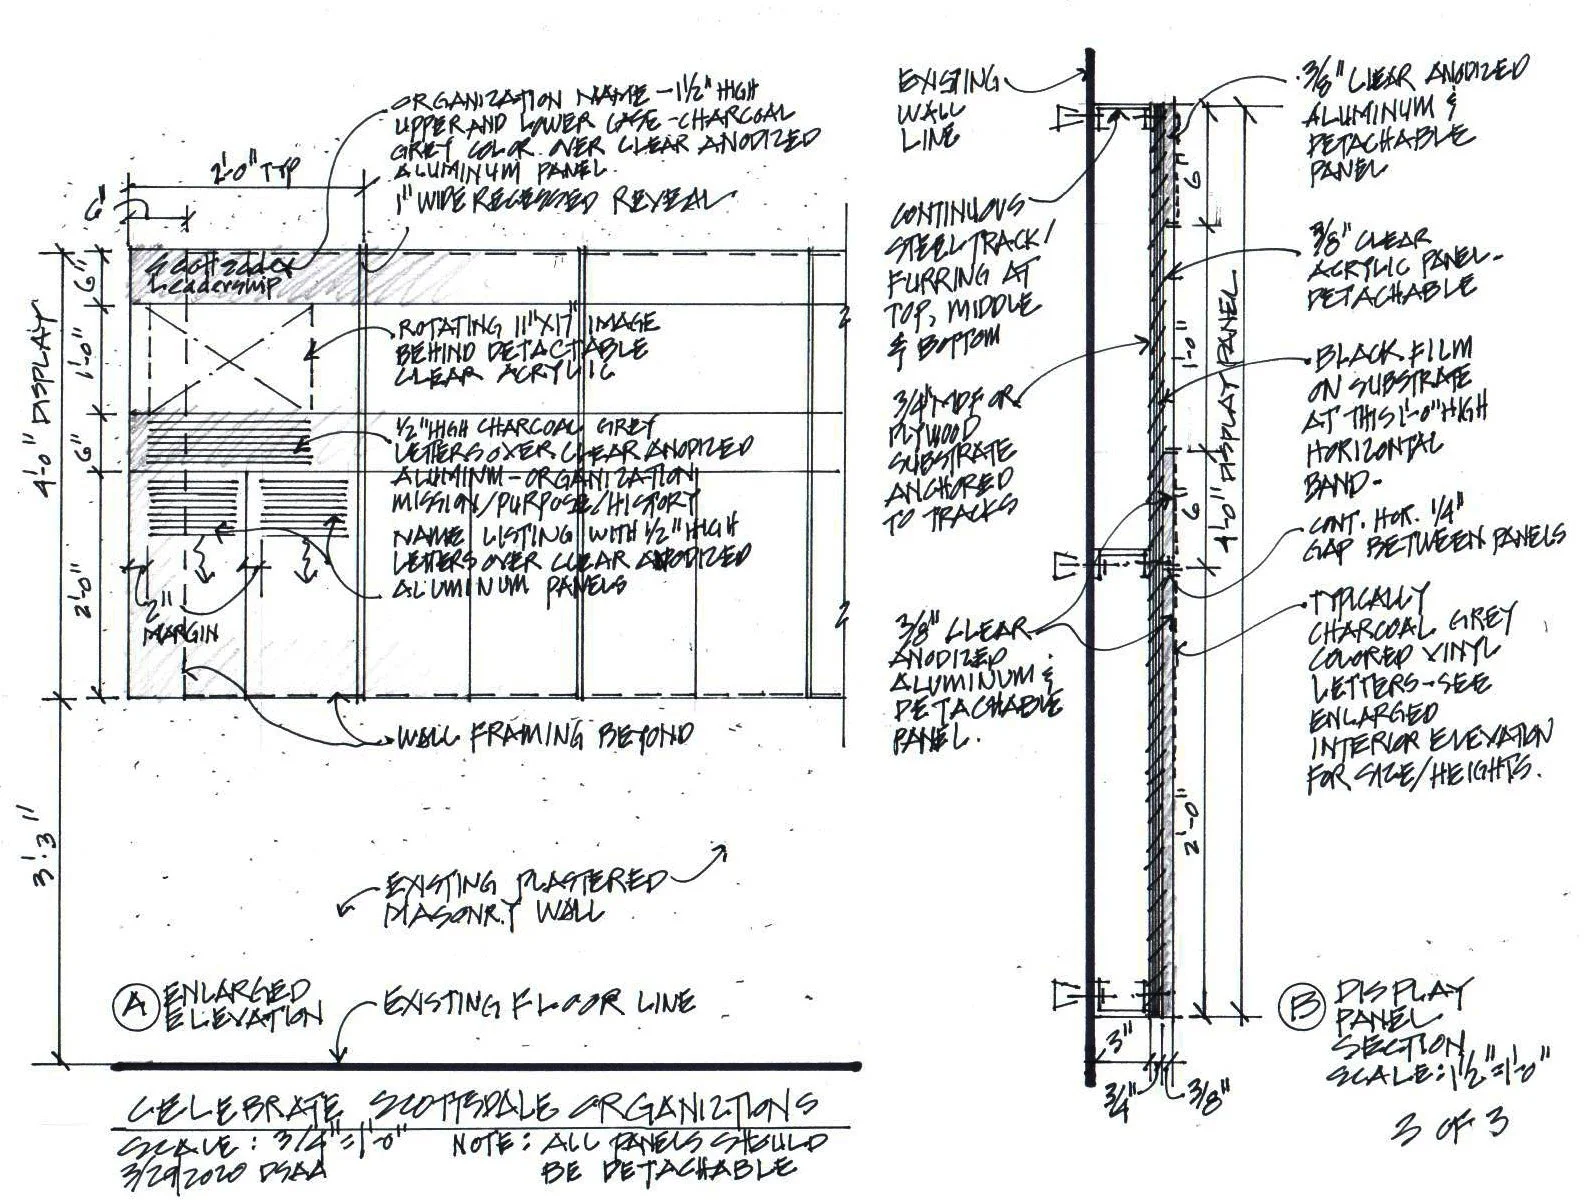 ORGANIZATION NAME - 1½" HIGH
UPPER AND LOWER CASE - CHARCOAL
GREY COLOR OVER CLEAR ANODIZED
ALUMINUM PANEL.
1" WIDE RECESSED REVEAL
2'-0" TYP
6"
Leadership
6"
1'-0"
6"
2'-0"
4'-0" DISPLAY
3'-3"
ROTATING 11"X17" IMAGE
BEHIND DETACTABLE
CLEAR ACRYLIC
½" HIGH CHARCOAL GREY
LETTERS OVER CLEAR ANODIZED
ALUMINM - ORGANIZATION
MISSION/PURPOSE/HISTORY
NAME LISTING WITH ½" HIGH
LETTERS OVER CLEAR ANODIZED
ALUMINUM PANELS
2"
MARGIN
WALL FRAMING BEYOND
EXISTING PLASTERED
MASONRY WALL
A
ENLARGED
ELEVATION
EXISTING FLOOR LINE
CELEBRATE SCOTTSDALE ORGANIZTIONS
SCALE: 3/4"=1'-0"
3/29/2020 DSAA
NOTE: ALL PANELS SHOULD
BE DETACHABLE
EXISTING
WALL
LINE
CONTINUOUS
STEEL TRACK/
FURRING AT
TOP, MIDDLE
& BOTTOM
3/4" MDF OR
PLYWOOD
SUBSTRATE
ANCHORED
TO TRACKS
3/8" CLEAR
ANODIZED
ALUMINUM &
DETACHABLE
PANEL.
6"
1'-0"
6"
2'-0"
4'-0" DISPLAY PANEL
3"
3/4"
3/8"
3/8" CLEAR ANODIZED
ALUMINUM &
DETACHABLE
PANEL
3/8" CLEAR
ACRYLIC PANEL -
DETACHABLE
BLACK FILM
ON SUBSTRATE
AT THIS 1'-0" HIGH
HORIZONTAL
BAND -
CONT. HOR. 1/4"
GAP BETWEEN PANELS
TYPICALLY
CHARCOAL GREY
COLORED VINYL
LETTERS - SEE
ENLARGED
INTERIOR ELEVATION
FOR SIZE/HEIGHTS.
B
DISPLAY
PANEL
SECTION
SCALE: 1½"=1'-0"
3 OF 3